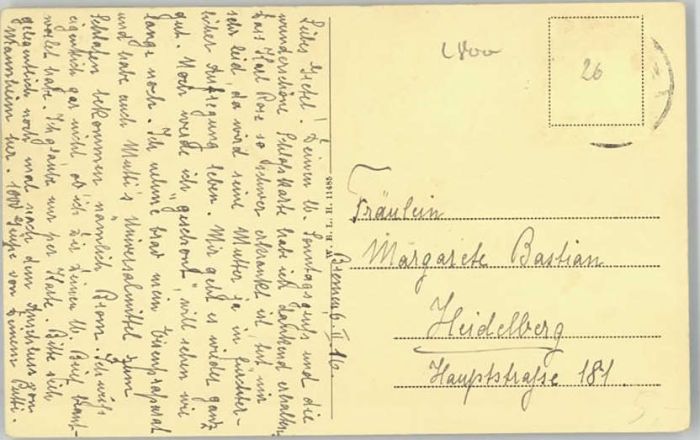 Bremen, 6. II. 16.
Liebes Gretel! Deinen lb. Sonntagsgruß und die
wunderschöne Schloßkarte habe ich dankend erhalten.
Dass Karl Rose so schwer erkrankt ist, tut mir
sehr leid, da wird seine Mutter ja in fürchter-
licher Aufregung leben. Mir geht es wieder ganz
gut. Noch werde ich "geschont", will sehen wie
lange noch. Ich nehme brav mein Eisenpräparat
und habe auch Mutti's Universalmittel zum
Schlafen bekommen nämlich Brom. Ich weiß
eigentlich gar nicht, ob ich Dir Deinen lb. Brief beant-
wortet habe. Ich glaube nur per Karte. Bitte sieh
gelegentlich noch mal nach dem Anschluss von
Mannheim her. 1000 Grüße von Deinem
W. B. L. H. 11486
26
Fräulein
Margarete Bastian
Heidelberg
Hauptstraße 181.